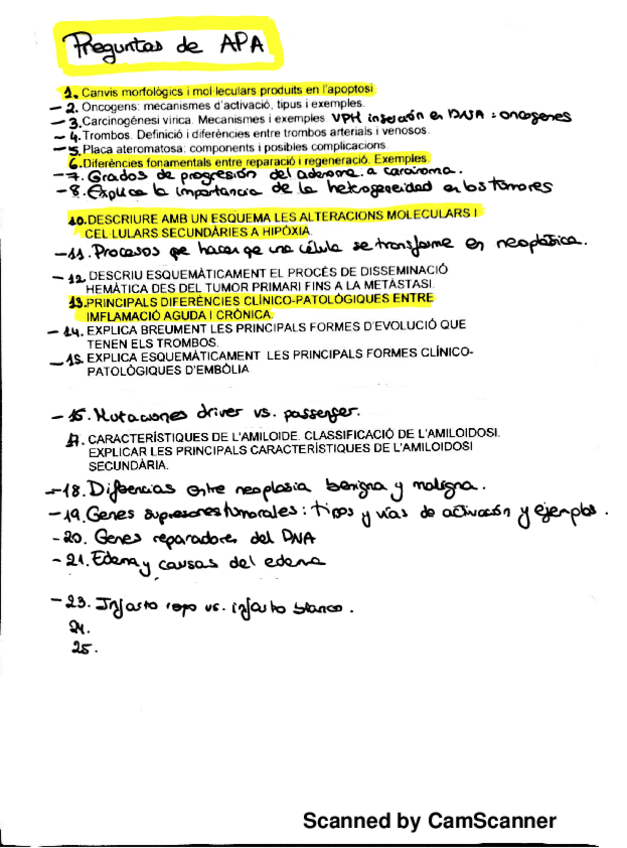 Preguntas de APA
1. Canvis morfològics i mol·leculars produits en l'apoptosi
- 2. Oncogens: mecanismes d'activació, tipus i exemples.
- 3. Carcinogénesi vírica. Mecanismes i exemples. VPH inserción en DNA = oncogenes
- 4. Trombos. Definició i diferències entre trombos arterials i venosos.
- 5. Placa ateromatosa: components i posibles complicacions.
6. Diferències fonamentals entre reparació i regeneració. Exemples.
- 7. Grados de progresión del adenoma a carcinoma.
- 8. Explica la importancia de la heterogeneidad en los tumores
10. DESCRIURE AMB UN ESQUEMA LES ALTERACIONS MOLECULARS I
CEL·LULARS SECUNDÀRIES A HIPÒXIA.
- 11. Procesos que hacen que una célula se transforme en neoplásica.
- 12. DESCRIU ESQUEMÀTICAMENT EL PROCÈS DE DISSEMINACIÓ
HEMÀTICA DES DEL TUMOR PRIMARI FINS A LA METÀSTASI.
13. PRINCIPALS DIFERÈNCIES CLÍNICO-PATOLÒGIQUES ENTRE
IMFLAMACIÓ AGUDA I CRÒNICA.
- 14. EXPLICA BREUMENT LES PRINCIPALS FORMES D'EVOLUCIÓ QUE
TENEN ELS TROMBOS.
- 15. EXPLICA ESQUEMÀTICAMENT LES PRINCIPALS FORMES CLÍNICO-
PATOLÒGIQUES D'EMBÒLIA
- 15. Mutaciones driver vs. passenger.
17. CARACTERÍSTIQUES DE L'AMILOIDE. CLASSIFICACIÓ DE L'AMILOIDOSI.
EXPLICAR LES PRINCIPALS CARACTERÍSTIQUES DE L'AMILOIDOSI
SECUNDÀRIA.
- 18. Diferencias entre neoplasia benigna y maligna.
- 19. Genes supresores tumorales: tipos y vías de activación y ejemplos.
- 20. Genes reparadores del DNA
- 21. Edema y causas del edema
- 23. Infarto rojo vs. infarto blanco.
24.
25.
Scanned by CamScanner